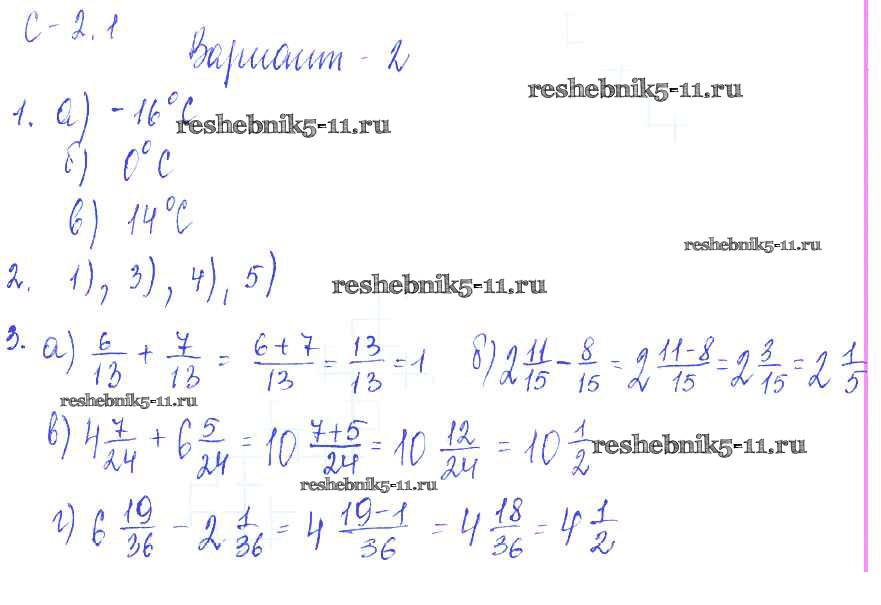 С-2.1
Вариант - 2
reshebnik5-11.ru
1. а) -16°С
reshebnik5-11.ru
б) 0°С
в) 14°С
reshebnik5-11.ru
2. 1), 3), 4), 5)
reshebnik5-11.ru
3. а) 6/13 + 7/13 = (6+7)/13 = 13/13 = 1 б) 2 11/15 - 8/15 = 2 (11-8)/15 = 2 3/15 = 2 1/5
reshebnik5-11.ru
в) 4 7/24 + 6 5/24 = 10 (7+5)/24 = 10 12/24 = 10 1/2
reshebnik5-11.ru
reshebnik5-11.ru
г) 6 19/36 - 2 1/36 = 4 (19-1)/36 = 4 18/36 = 4 1/2